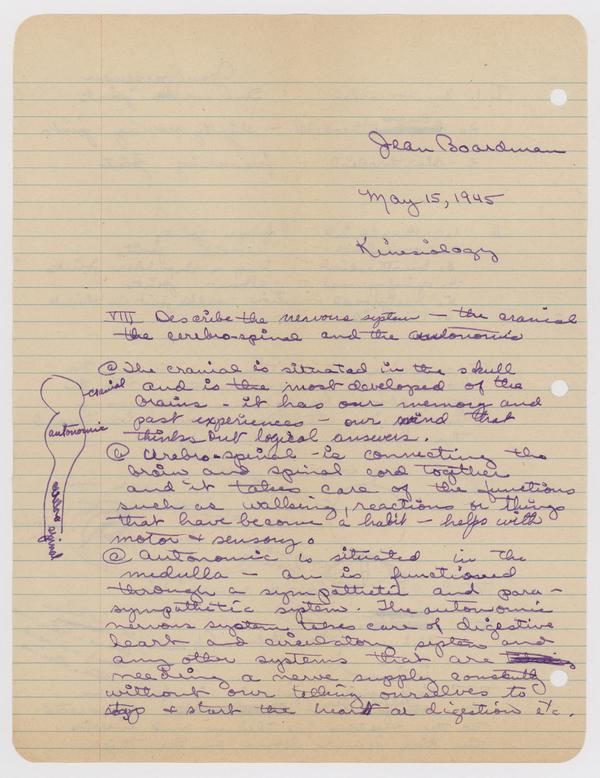 Jean Boardman
May 15, 1945
Kinesiology
VIII Describe the nervous system - the cranial
the cerebro-spinal and the autonomic
@ The cranial is situated in the skull
and is the most developed of the
brains - it has our memory and
past experiences - our mind that
thinks out logical answers.
@ cerebro-spinal - is connecting the
brain and spinal cord together
and it takes care of the functions
such as walking, reactions or things
that have become a habit - helps with
motor & sensory.
@ Autonomic is situated in the
medulla - an is functioned
through a sympathetic and para-
sympathetic system. The autonomic
nervous system takes care of digestive
heart and circulatory system and
any other systems that are
needing a nerve supply constantly
without our telling ourselves to
stop & start the heart or digestion etc.
cranial
autonomic
cerebro spinal